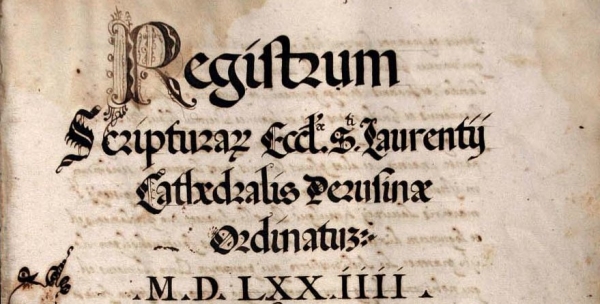 Registrum
Scripturaꝝ Eccl.æ S.ti Laurentij
Cathedralis Perusinæ
Ordinatuz:
.M.D.LXX.IIII.